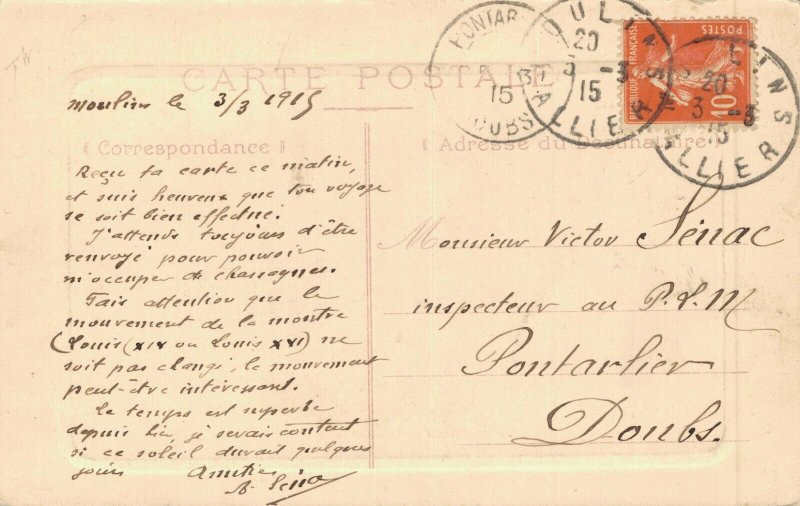 CARTE POSTALE
Moulins le 3/3 1915
Correspondance
Reçu ta carte ce matin,
et suis heureux que ton voyage
se soit bien effectué.
J'attends toujours d'être
renvoyé pour pouvoir
m'occuper de chassagnes.
Fais attention que le
mouvement de la montre
(Louis (XIV ou Louis XVI) ne
soit pas changé, le mouvement
peut-être intéressant.
Le temps est superbe
depuis hier, je serais content
si ce soleil durait quelques
jours Amitiés
A. Séna
Adresse du Destinataire
Monsieur Victor Sénac
inspecteur au P.L.M
Pontarlier
Doubs.
PONTAR
15
DOUBS
MOULINS
20
3 -3
15
ALLIER
POSTES
REPUBLIQUE FRANÇAISE
10
LINS
20
3 -3
15
ALLIER